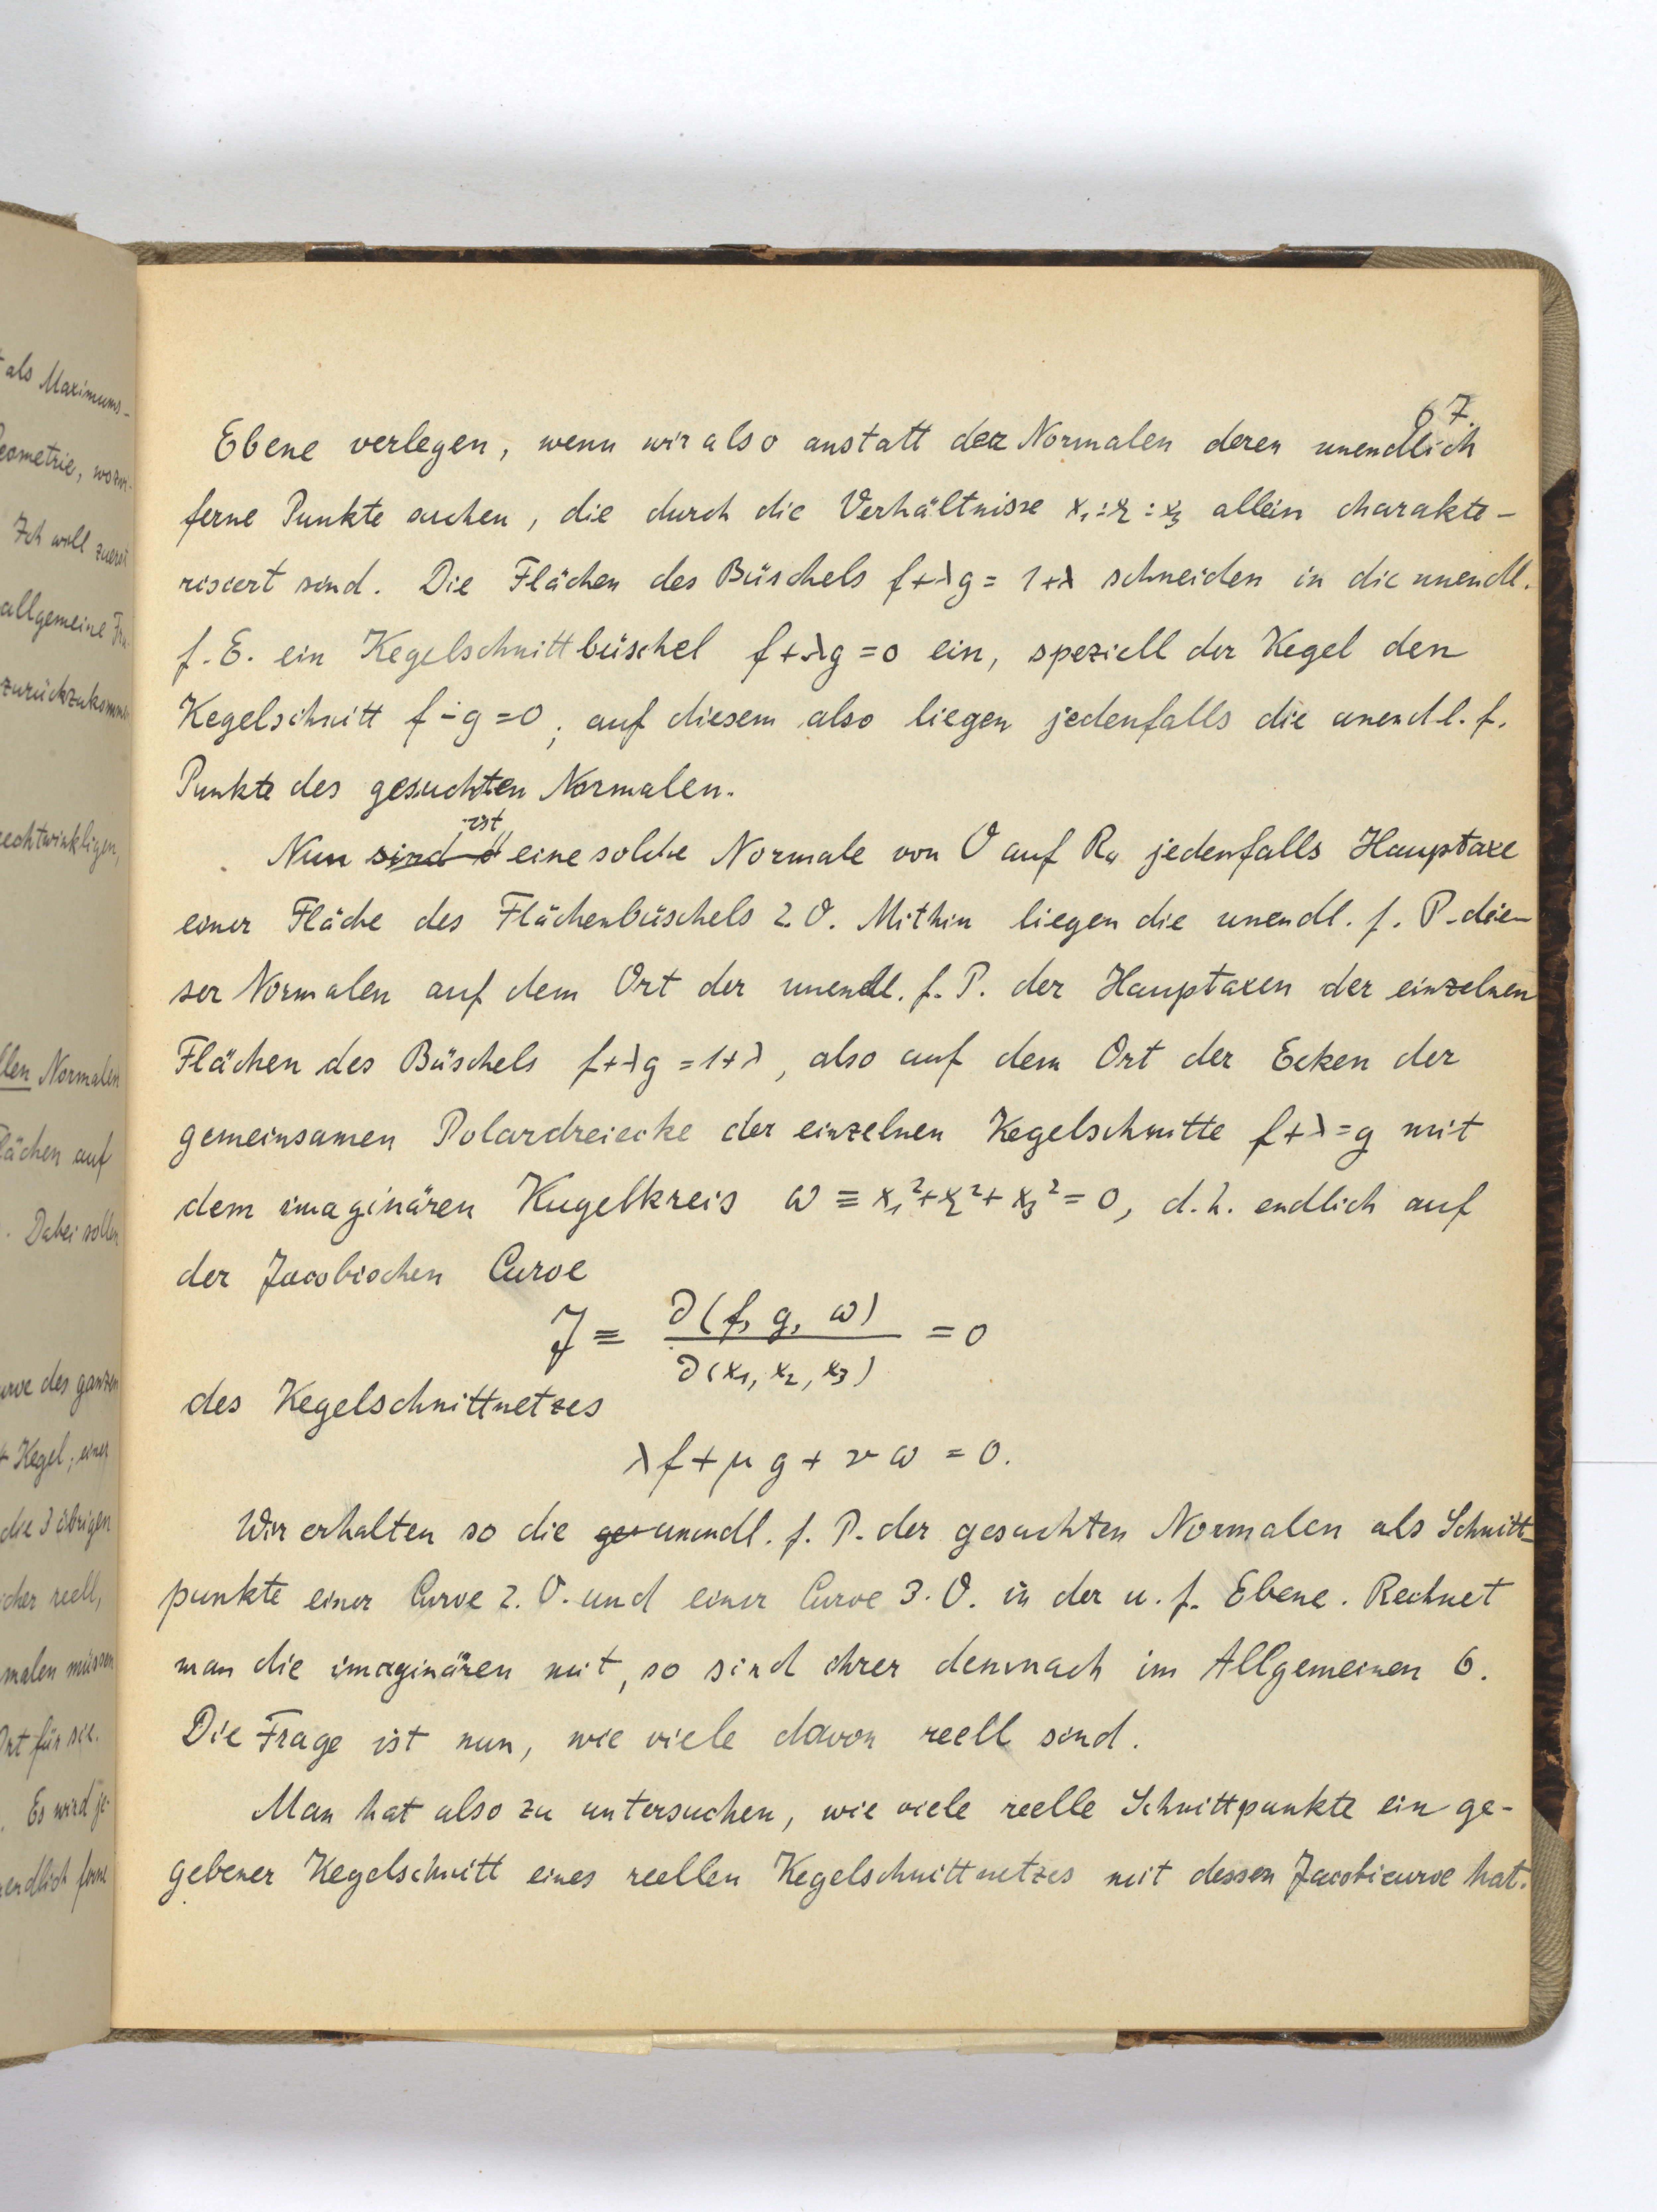 als Maximums-
eometrie, wozu
Ich will zuerst
allgemeine
zurückzukommen
rechtwinkligen,
llen Normalen
lächen auf
. Dabei sollen
urve des ganzen
Kegel; einer
die 3 übrigen
icher reell,
malen müssen
Ort für sie.
. Es wird je-
endlich ferne
67.
Ebene verlegen, wenn wir also anstatt der Normalen deren unendlich
ferne Punkte suchen, die durch die Verhältnisse x₁:x₂:x₃ allein charakte-
risiert sind. Die Flächen des Büschels f+λg = 1+λ schneiden in die unendl.
f. E. ein Kegelschnittbüschel f+λg = 0 ein, speziell der Kegel den
Kegelschnitt f-g=0; auf diesem also liegen jedenfalls die unendl. f.
Punkte des gesuchten Normalen.
ist
Nun sind eine solche Normale von O auf R₄ jedenfalls Hauptaxe
einer Fläche des Flächenbüschels 2. O. Mithin liegen die unendl. f. P. die-
ser Normalen auf dem Ort der unendl. f. P. der Hauptaxen der einzelnen
Flächen des Büschels f+λg = 1+λ, also auf dem Ort der Ecken der
gemeinsamen Polardreiecke der einzelnen Kegelschnitte f+λ=g mit
dem imaginären Kugelkreis ω ≡ x₁²+x₂²+x₃² = 0, d.h. endlich auf
der Jacobischen Curve
J ≡ ∂(f, g, ω) / ∂(x₁, x₂, x₃) = 0
des Kegelschnittnetzes
λf + μg + νω = 0.
Wir erhalten so die ge unendl. f. P. der gesuchten Normalen als Schnitt-
punkte einer Curve 2. O. und einer Curve 3. O. in der u. f. Ebene. Rechnet
man die imaginären mit, so sind ihrer demnach im Allgemeinen 6.
Die Frage ist nun, wie viele davon reell sind.
Man hat also zu untersuchen, wie viele reelle Schnittpunkte ein ge-
gebener Kegelschnitt eines reellen Kegelschnittnetzes mit dessen Jacobicurve hat.